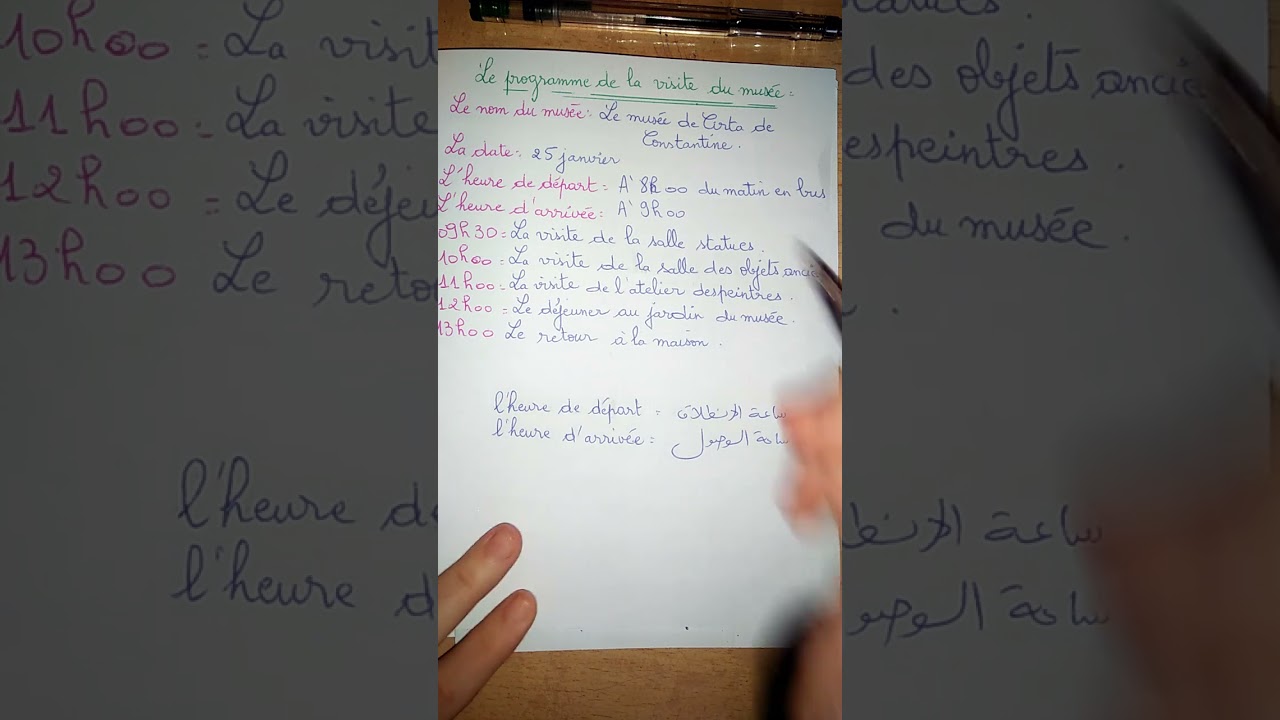 Le programme de la visite du musée :
Le nom du musée : Le musée de Cirta de
Constantine.
La date : 25 janvier
L'heure de départ : A' 8h00 du matin en bus
L'heure d'arrivée : A' 9h00
09h30 : La visite de la salle statues.
10h00 : La visite de la salle des objets
11h00 : La visite de l'atelier despeintres.
12h00 = Le déjeuner au jardin du musée.
13h00 Le retour à la maison.
l'heure de départ = ساعة الإنطلاق
l'heure d'arrivée = ساعة الوصول